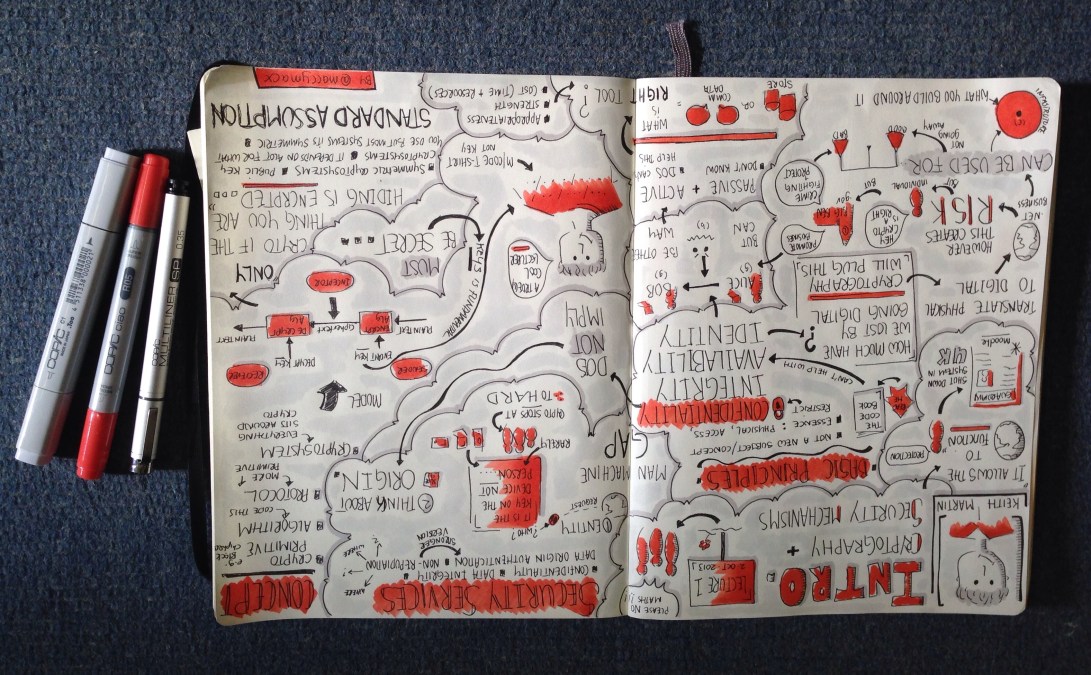 INTRO
CRYPTOGRAPHY +
SECURITY MECHANISMS
LECTURE 1
2 OCT 2013
PLEASE NO
MATHS
KEITH MARTIN
IT ALLOWS THE
TO
FUNCTION
PROTECTION
GUARDIAN
moodle
SHUT DOWN
SYSTEM IN
TRANSLATE PHYSICAL
TO DIGITAL
HOWEVER
THIS CREATES
RISK
NET
BUSINESS
INDIVIDUAL
BUT
BUT
GOV
CAN BE USED FOR
GOOD
BAD
NOT
GOING
AWAY
INFRASTRUCTURE
WHAT YOU BUILD AROUND IT
CRIME
FIGHTING
PROJECT
KEY
IS RIGHT
HOW MUCH HAVE
WE LOST BY
GOING DIGITAL
CRYPTOGRAPHY
WILL PLUG THIS
?
CAN'T HELP WITH
BASIC PRINCIPLES
NOT A NEW SUBJECT/CONCEPT
ESSENCE: PHYSICAL ACCESS
RESTRICT
THE
CODE
BOOK
CONFIDENTIALITY
INTEGRITY
AVAILABILITY
IDENTITY
ALICE
BOB
(g)
(g)
BUT
CAN
BE OTHER
WAY
PASSIVE + ACTIVE
DON'T KNOW
DOS CAN
HELP THIS
WHAT
IS
RIGHT TOOL ?
STORE
OR
COMM
DATA
MAN
MACHINE
GAP
SECURITY SERVICES
CONFIDENTIALITY
DATA INTEGRITY
DATA ORIGIN AUTHENTICATION
NON-REPUDIATION
STRONGER
VERSION
① IDENTITY
REQUEST
? WHO?
IT IS THE
KEY ON THE
DEVICE
NOT
PERSON
② THINK ABOUT
ORIGIN
RARELY
CRYPTO STOPS AT
TO HARD
DOS
NOT
IMPLY
A TRULY
COOL
LECTURER
M/CODE T-SHIRT
NOT KEY
APPROPRIATENESS
STRENGTH
COST (TIME + RESOURCES)
CONCEPT
CRYPTO
PRIMITIVE
ALGORITHM
CODE THIS
PROTOCOL
MORE
PRIMITIVE
CRYPTOSYSTEM
EVERYTHING
SITS AROUND
CRYPTO
MODEL
SENDER
RECEIVER
ENCRYPT KEY
DECRYPT KEY
PLAINTEXT
ENCRYPT
ALG
CIPHERTEXT
DECRYPT
ALG
PLAINTEXT
INCEPTOR
KEYS IS FUNDAMENTAL
MUST
BE SECRET
ONLY
CRYPTO IF THE
THING YOU ARE
HIDING IS ENCRYPTED
SYMMETRIC CRYPTOSYSTEMS
PUBLIC KEY
CRYPTOSYSTEMS
IT DEPENDS ON FOR WHAT
YOU USE BUT MOST SYSTEMS ITS SYMMETRIC
STANDARD ASSUMPTION
BY @maccymacx
COPIC
COPIC CIAO
COPIC
MULTILINER SP 0.35